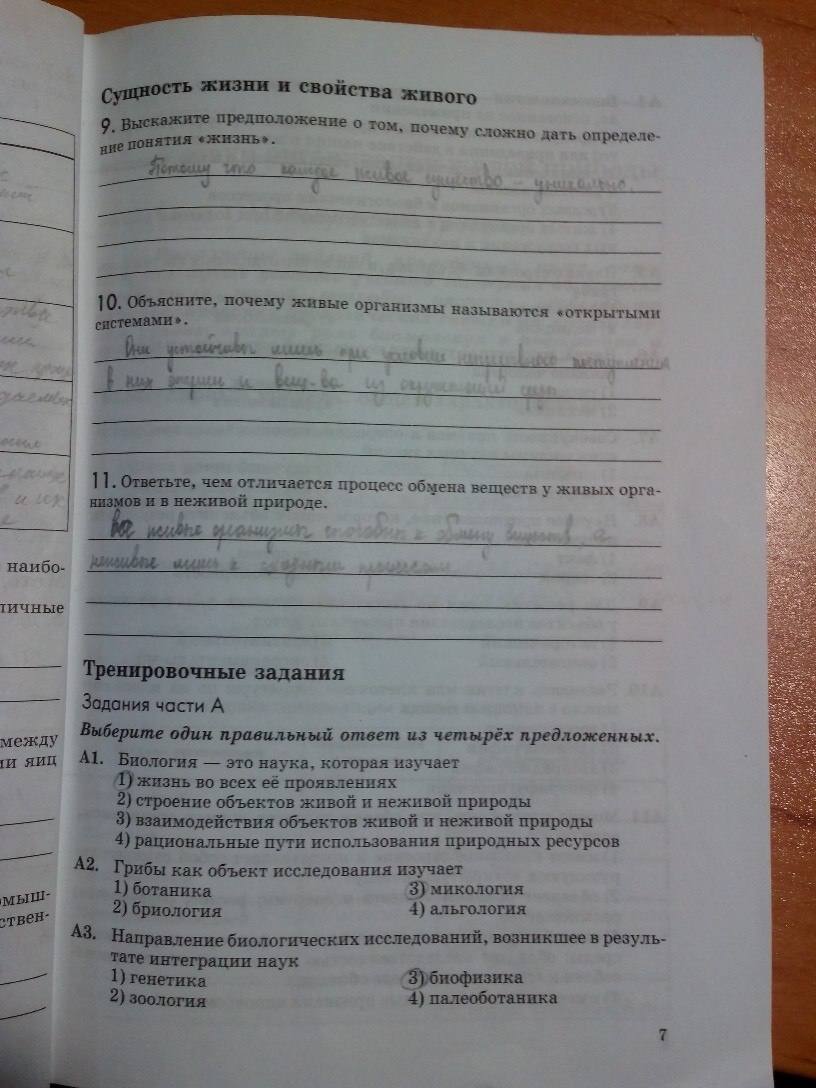 Сущность жизни и свойства живого
9. Выскажите предположение о том, почему сложно дать определе-
ние понятия «жизнь».
Потому что каждое живое существо – уникально.
10. Объясните, почему живые организмы называются «открытыми
системами».
Они устойчивы лишь при условии непрерывного поступления
в них энергии и вещ-ва из окружающей среды
11. Ответьте, чем отличается процесс обмена веществ у живых орга-
низмов и в неживой природе.
Все живые организмы способны к обмену веществ, а
неживые лишь к процессам
Тренировочные задания
Задания части А
Выберите один правильный ответ из четырёх предложенных.
А1. Биология — это наука, которая изучает
1) жизнь во всех её проявлениях
2) строение объектов живой и неживой природы
3) взаимодействия объектов живой и неживой природы
4) рациональные пути использования природных ресурсов
А2. Грибы как объект исследования изучает
1) ботаника 3) микология
2) бриология 4) альгология
А3. Направление биологических исследований, возникшее в резуль-
тате интеграции наук
1) генетика 3) биофизика
2) зоология 4) палеоботаника
7
наибо-
личные
между
ии яиц
омыш-
ствен-